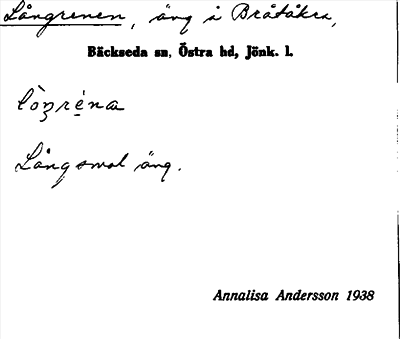 Långrenen, äng å Bråtåkra,
Bäckseda sn, Östra hd, Jönk. l.
lòŋréna
Långsmal äng.
Annalisa Andersson 1938